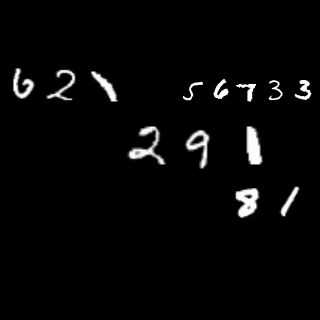 621 56733
291
81